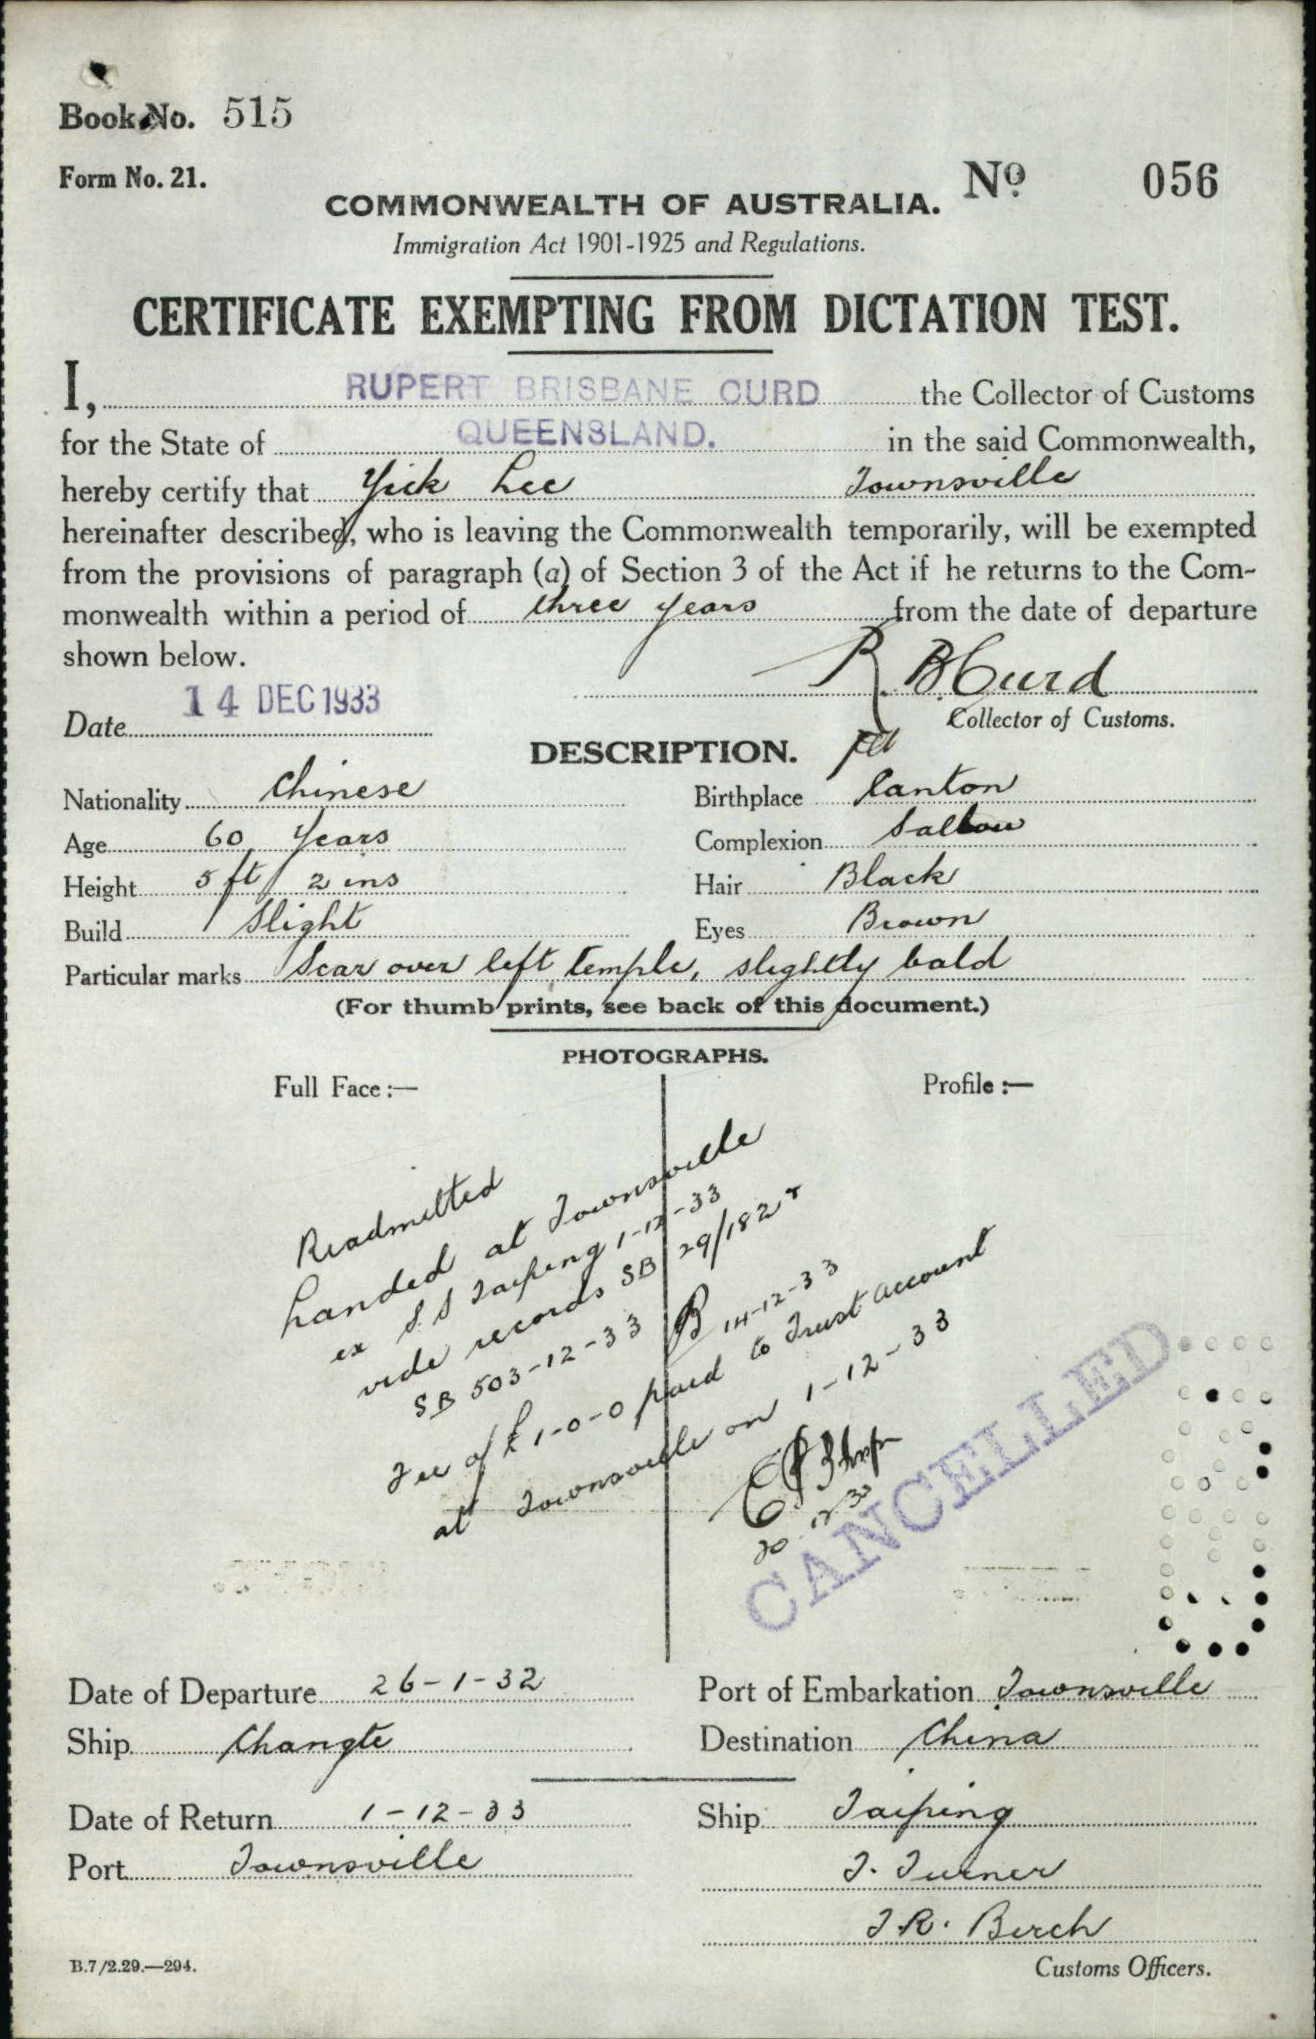 Book No. 515
Form No. 21.
COMMONWEALTH OF AUSTRALIA. No. 056
Immigration Act 1901-1925 and Regulations.
CERTIFICATE EXEMPTING FROM DICTATION TEST.
I, RUPERT BRISBANE CURD the Collector of Customs
for the State of QUEENSLAND. in the said Commonwealth,
hereby certify that Yick Lee Townsville
hereinafter described, who is leaving the Commonwealth temporarily, will be exempted
from the provisions of paragraph (a) of Section 3 of the Act if he returns to the Com-
monwealth within a period of three years from the date of departure
shown below.
R. B Curd
Date 14 DEC 1933
Collector of Customs.
DESCRIPTION.
Nationality Chinese Birthplace Canton
Age 60 Years Complexion Sallow
Height 5 ft 2 ins Hair Black
Build Slight Eyes Brown
Particular marks Scar over left temple, slightly bald
(For thumb prints, see back of this document.)
PHOTOGRAPHS.
Full Face :— Profile :—
Readmitted
Landed at Townsville
ex S.S Taiping 1-12-33
vide records SB 29/182
SB 503-12-33
14-12-33
Fee of £1-0-0 paid to Trust Account
at Townsville on 1-12-33
CANCELLED
Date of Departure 26-1-32 Port of Embarkation Townsville
Ship Changte Destination China
Date of Return 1-12-33 Ship Taiping
Port Townsville T. Turner
J.R. Birch
B.7/2.29.—294. Customs Officers.